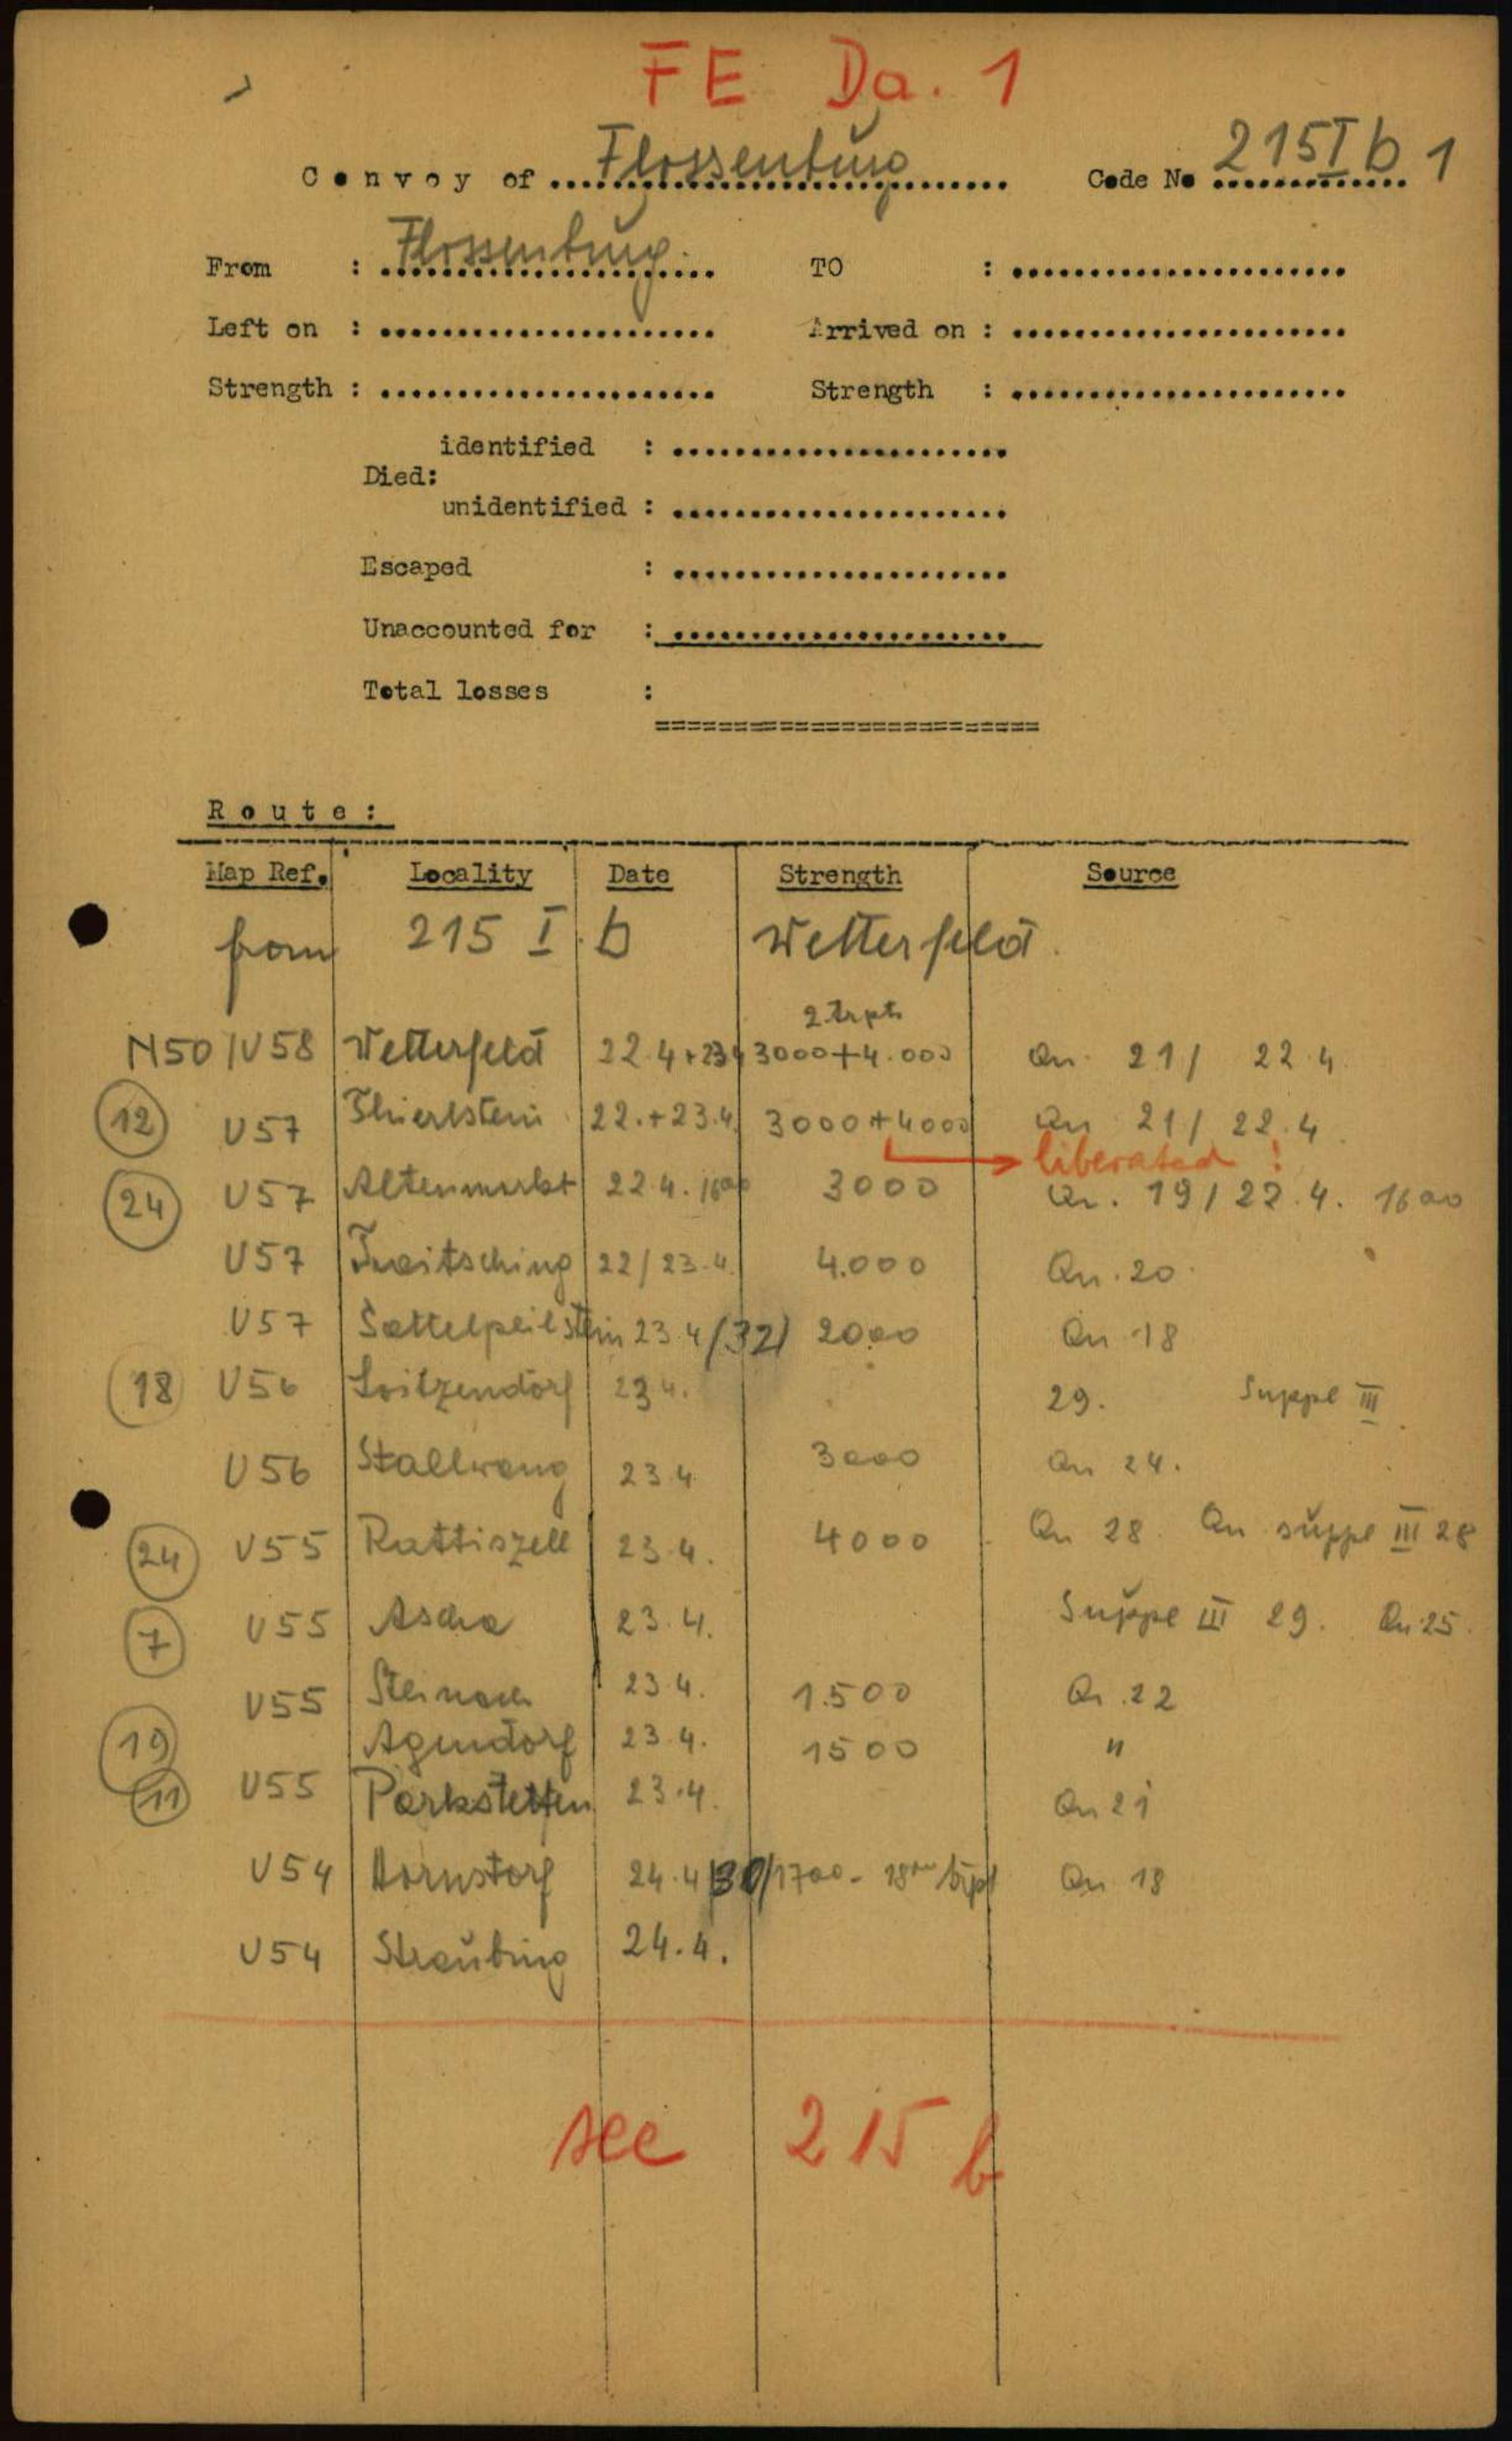 FE Da. 1
Convoy of Flossenbürg Code No 215 I b 1
From : Flossenbürg. TO :
Left on : Arrived on :
Strength : Strength :
identified :
Died:
unidentified :
Escaped :
Unaccounted for :
Total losses :
Route:
Map Ref. Locality Date Strength Source
from 215 I b Wetterfeld.
2 trpts
N50/U58 Wetterfeld 22.4+23.4 3000+4.000 Qu. 21/ 22.4.
(12) U57 Thierlstein 22.+23.4 3000+4000 Qu 21/ 22.4.
liberated !
(24) U57 Altenmarkt 22.4. 1600 3000 Qu. 19/22.4. 1600
U57 Traitsching 22/23.4. 4.000 Qu. 20.
U57 Sattelpeilstein 23.4 /32/ 2000 Qu 18
(18) U56 Loitzendorf 23.4. 29. Suppl III
U56 Stallwang 23.4 3000 Qu 24.
(24) U55 Rattiszell 23.4. 4000 Qu 28. Qu suppl III 28
(7) U55 Ascha 23.4. Suppl III 29. Qu 25.
U55 Steinach 23.4. 1.500 Qu. 22
(19) Agendorf 23.4. 1500 "
(11) U55 Parkstetten 23.4. Qu 21
U54 Hornstorf 24.4 1700 - 18 Qu 18
U54 Straubing 24.4.
see 215 b